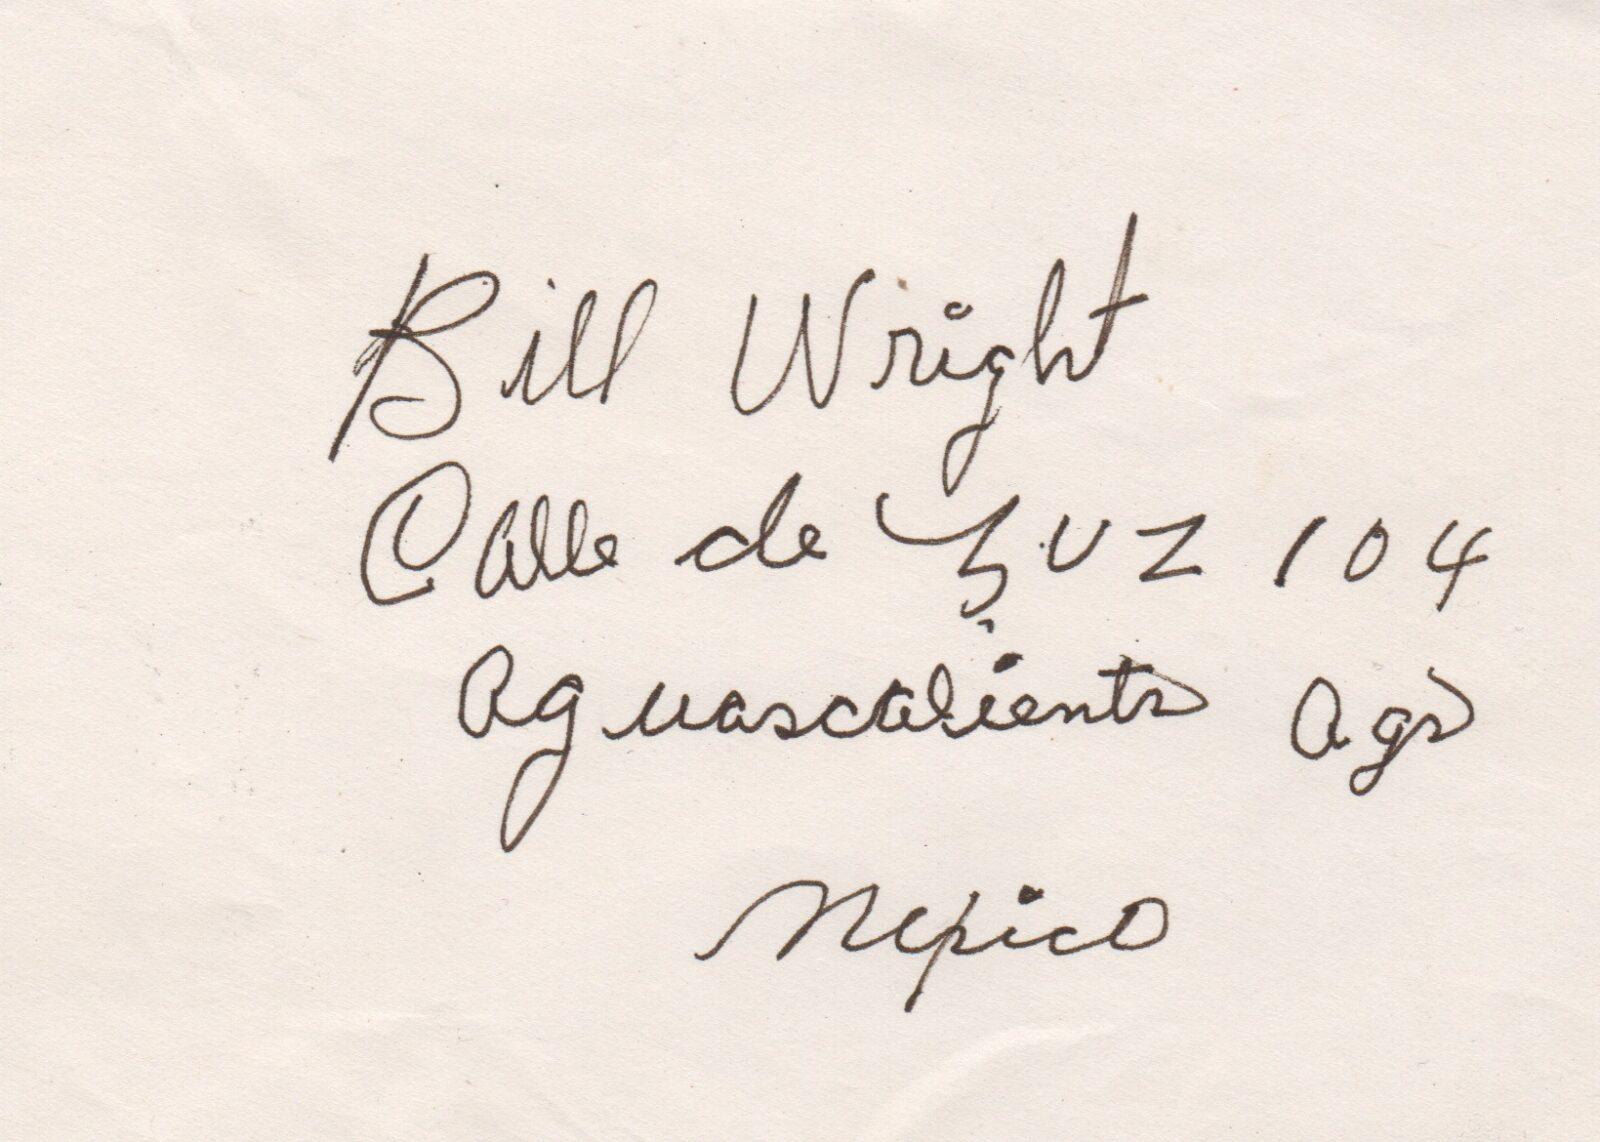 Bill Wright
Calle de 104
Aguascalientes Ags
Mexico